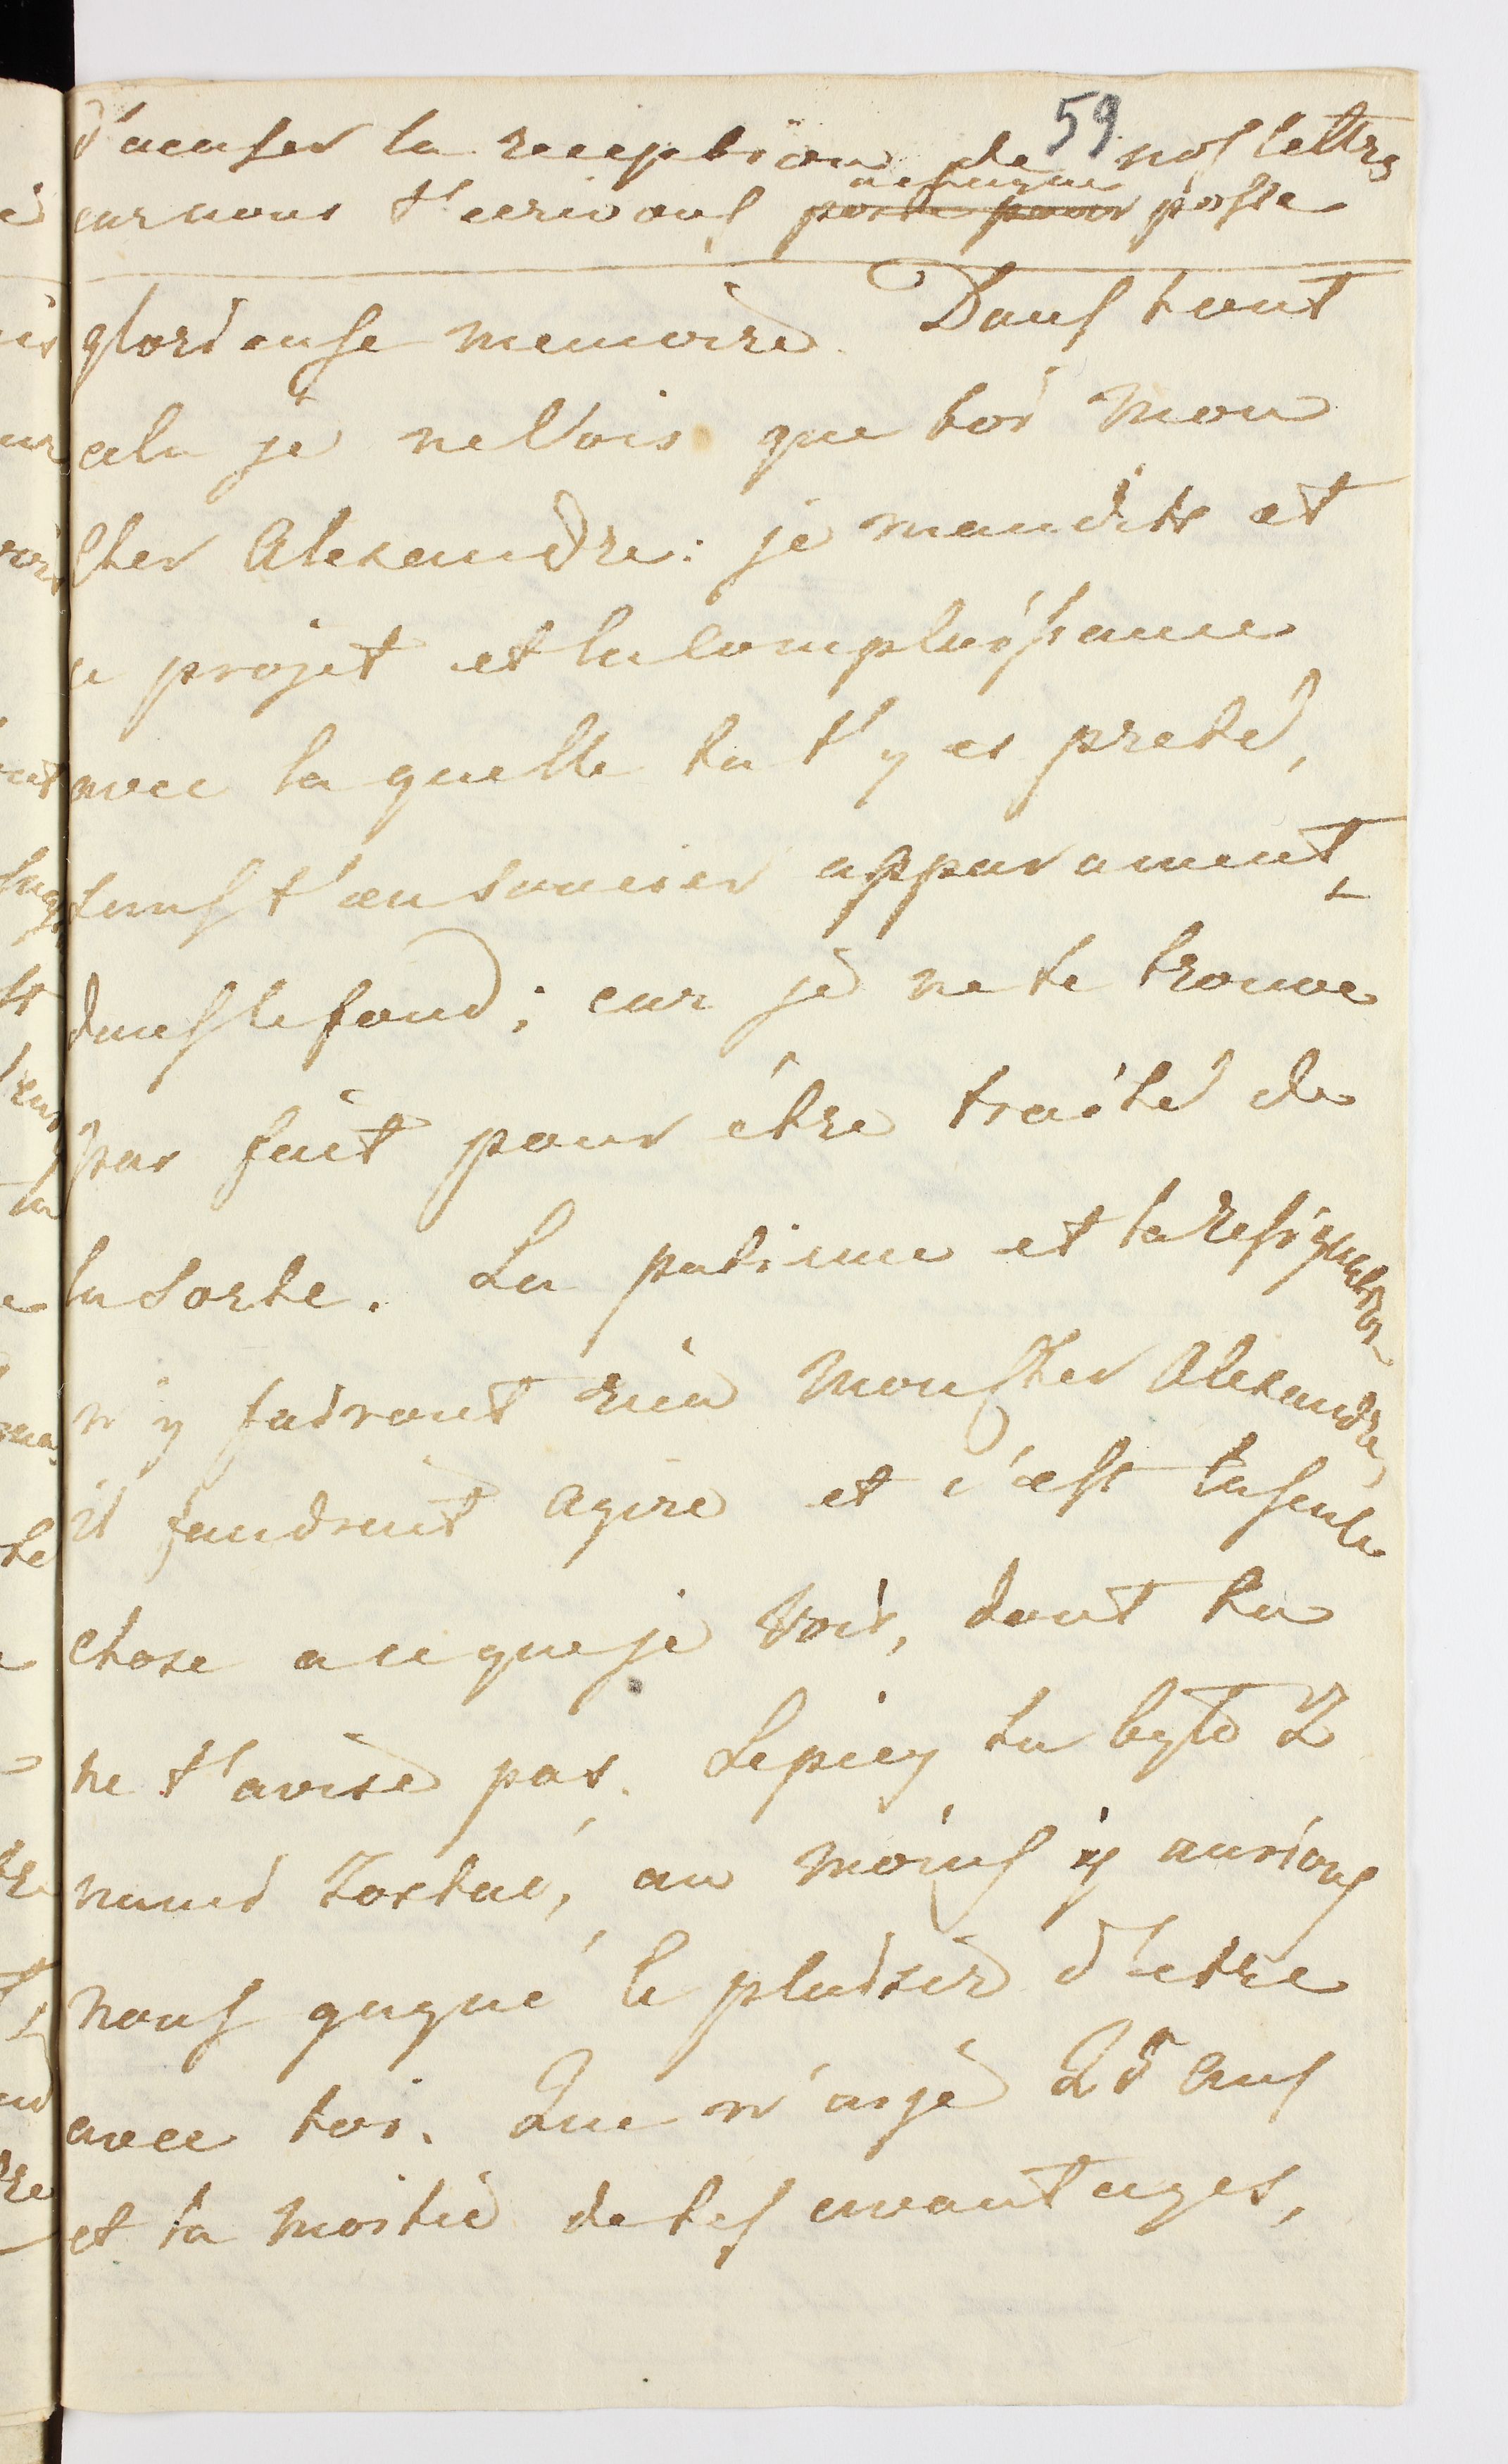 59
d'acuser la reception de nos lettres
car nous t'ecrivons poste pour chaque poste
glorieuse memoire. Dans tout
cela je ne Vois que toi mon
Cher Alexandre: je maudits et
ce projet et la Complaissance
avec la quelle tu t'y es preté,
sans t'en soucier apparament
dans le fond; car je ne te trouve
pas fait pour être traité de
la Sorte. La patience et la resignation
n'y fairont rien mon Cher Alexandre,
il faudrait agire et c'est la seule
chose a ce que je Vois, dont tu
ne t'avise pas. Lepiey tu było Z
nami Zostać, au moins y aurions
nous gagné le plaisir d'etre
avec toi. Que n'aije 25 ans
et la moitié de tes avantages,